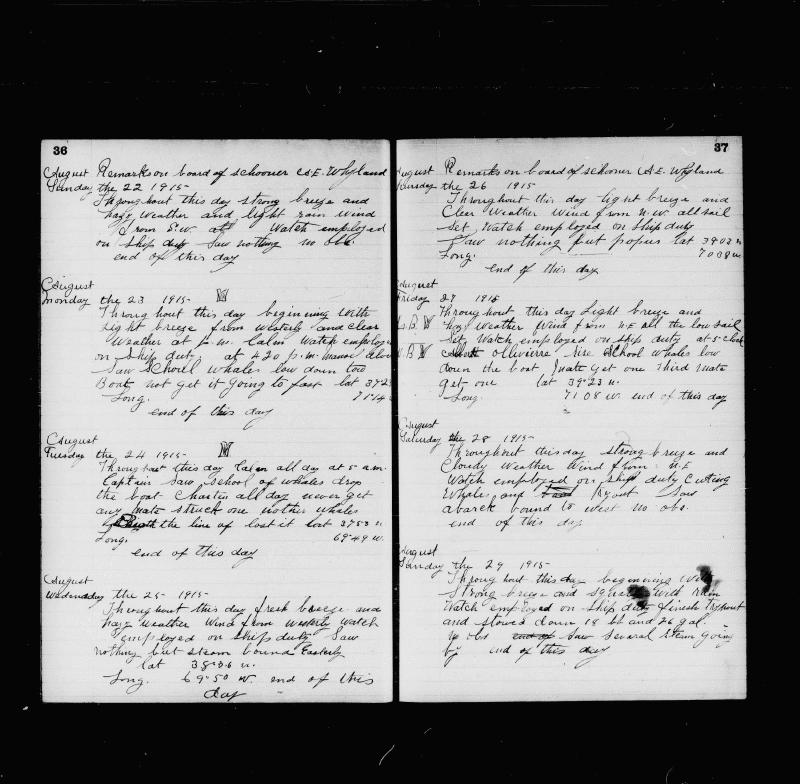 36
August Remarks on board of schooner A.E. Whyland
Sunday the 22 1915
Throughout this day strong breeze and
hazy weather and light rain wind
from S.W. at Watch employed
on ship duty Saw nothing no obs.
end of this day
August
Monday the 23 1915
Throughout this day beginning with
light breeze from westerly and clear
Weather at p.m. Calm Watch employ
on ship duty at 4 30 p.m.
Saw School whales low down tow
Boat, not get it going to fast lat 37 23
Long. 71 14
end of this day
August
Tuesday the 24 1915
Throughout this day Calm all day at 5 a.m.
Captain Saw School of whales drop
the boat all day never get
any mate struck one nother whales
the line of lost it lat 37 53 n
Long. 69 49 w.
end of this day
August
Wednesday the 25 1915
Throughout this day fresh breeze and
hazy weather Wind from Westerly Watch
employed on ship duty Saw
nothing but steam bound Easterly
lat 38 36 n.
Long. 69 50 W. end of this
day
37
August Remarks on board of schooner A.E. Whyland
the 26 1915
Throughout this day light breeze and
Clear Weather Wind from N.W. all sail
set Watch employed on ship duty
Saw nothing but lat 39 02 n
Long. 70 08 w
end of this day
August
Friday 27 1915
Throughout this day Light breeze and
L.B. hazy weather Wind from N.E all the low sail
Set, Watch employed on ship duty at 5 clock
W.B ollivierre School whales low
down the boat mate get one Third mate
get one lat 39 23 n.
Long. 71 08 w. end of this day
August
Saturday the 28 1915
Throughout this day strong breeze and
Cloudy Weather Wind from N.E
Watch employed on ship duty Cutting
Whale and Tryout Saw
abarck bound to west no obs.
end of this day
August
Sunday the 29 1915
Throughout this day beginning with
Strong breeze and with rain
Watch employed on ship duty finish Tryout
and stowed down 18 bb and 26 gal.
no obs end of Saw Several steam going
by end of this day